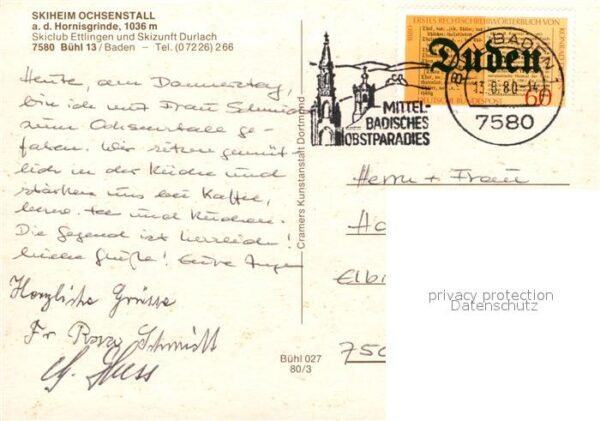 SKIHEIM OCHSENSTALL
a. d. Hornisgrinde, 1036 m
Skiclub Ettlingen und Skizunft Durlach
7580 Bühl 13 / Baden – Tel. (07226) 266
Heute, am Donnerstag,
bin ich mit Frau Schmidt
zum Ochsenstall ge-
fahren. Wir sitzen gemüt-
lich in der Küche und
stärken uns bei Kaffee,
bzw. Tee und Kuchen.
Die Gegend ist herrlich!
Liebe Grüße! Eure
Herzliche Grüsse
Fr Rosa Schmidt
Cramers Kunstanstalt Dortmund
Bühl 027
80/3
ERSTES RECHTSCHREIBWÖRTERBUCH VON
KONRAD
1880
Duden
DEUTSCHE BUNDESPOST
60
BADEN 1
80-14
7580
MITTEL-
BADISCHES
OBSTPARADIES
Herrn + Frau
Elbi
750
privacy protection
Datenschutz